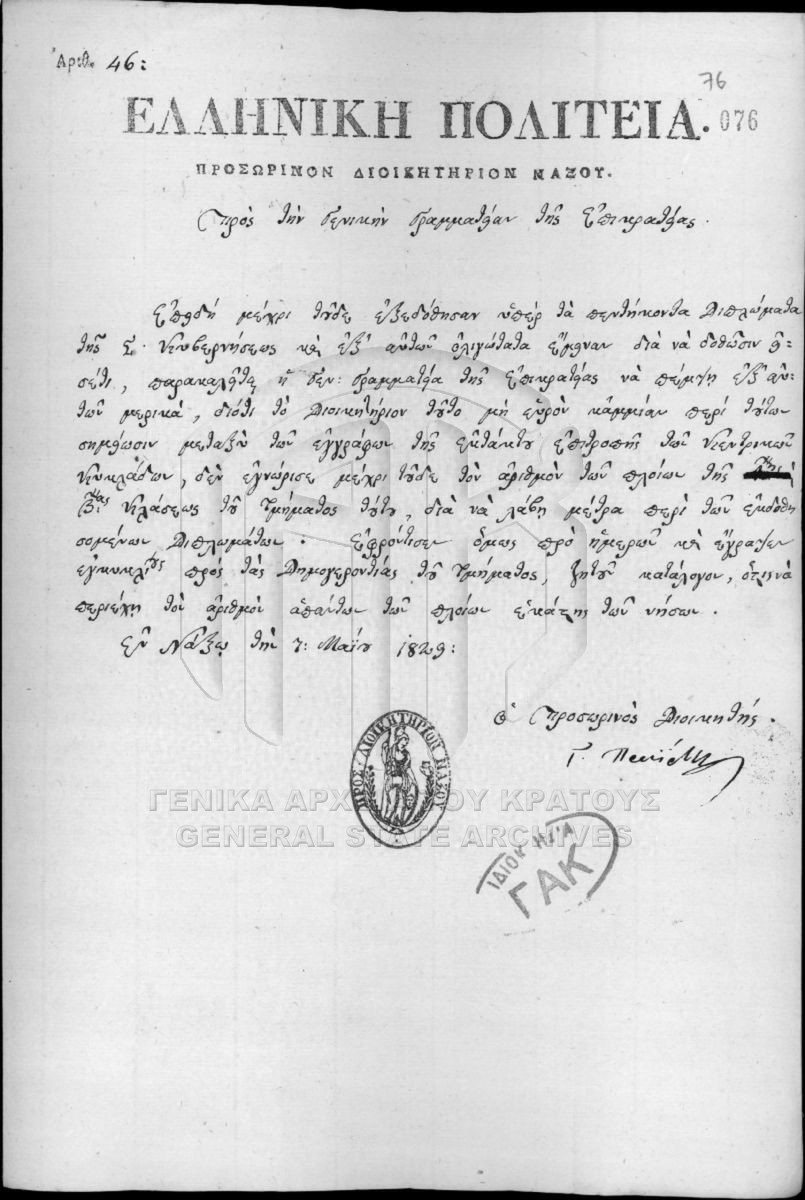 Ἀριθ. 46:
76
ΕΛΛΗΝΙΚΗ ΠΟΛΙΤΕΙΑ.
076
ΠΡΟΣΩΡΙΝΟΝ ΔΙΟΙΚΗΤΗΡΙΟΝ ΝΑΞΟΥ.
Πρὸς τὴν Γενικὴν Γραμματείαν τῆς Ἐπικρατείας.
Ἐπειδὴ μέχρι τοῦδε ἐξεδόθησαν ὑπὲρ τὰ πεντήκοντα Διπλώματα
τῆς Σ. Κυβερνήσεως καὶ ἐξ αὐτῶν ὀλιγώτατα ἔμειναν διὰ νὰ δοθῶσιν
εἰσέτι, παρακαλεῖται ἡ Γεν: Γραμματεία τῆς Ἐπικρατείας νὰ πέμψῃ ἐξ αὐ-
τῶν μερικά, διότι τὸ Διοικητήριον τοῦτο μὴ εὑρὸν κᾀμμίαν περὶ τούτων
σημείωσιν μεταξὺ τῶν ἐγγράφων τῆς ἐκτάκτου ἐπιτροπῆς τῶν Κεντρικῶν
Κυκλάδων, δὲν ἐγνώρισε μέχρι τοῦδε τὸν ἀριθμὸν τῶν πλοίων τῆς
Βας Κλάσεως τοῦ Τμήματος τούτου, διὰ νὰ λάβῃ μέτρα περὶ τῶν ἐκδοθη
σομένων Διπλωμάτων. Ἐφρόντισεν ὅμως πρὸ ἡμερῶν καὶ ἔγραψεν
ἐγκυκλίως πρὸς τὰς Δημογεροντίας τοῦ Τμήματος, ζητοῦν κατάλογον, ὅστις νὰ
περιέχῃ τὸν ἀριθμὸν ἁπάντων τῶν πλοίων ἑκάστης τῶν νήσων.
Ἐν Νάξῳ τῇ 7: Μαΐου 1829:
Ὁ Προσωρινὸς Διοικητής.
Γ.
ΠΡΟΣ. ΔΙΟΙΚΗΤΗΡΙΟΝ ΝΑΞΟΥ
ΓΕΝΙΚΑ ΑΡΧΕΙΑ ΤΟΥ ΚΡΑΤΟΥΣ
GENERAL STATE ARCHIVES
ΙΔΙΟΚΤΗΣΙΑ
ΓΑΚ